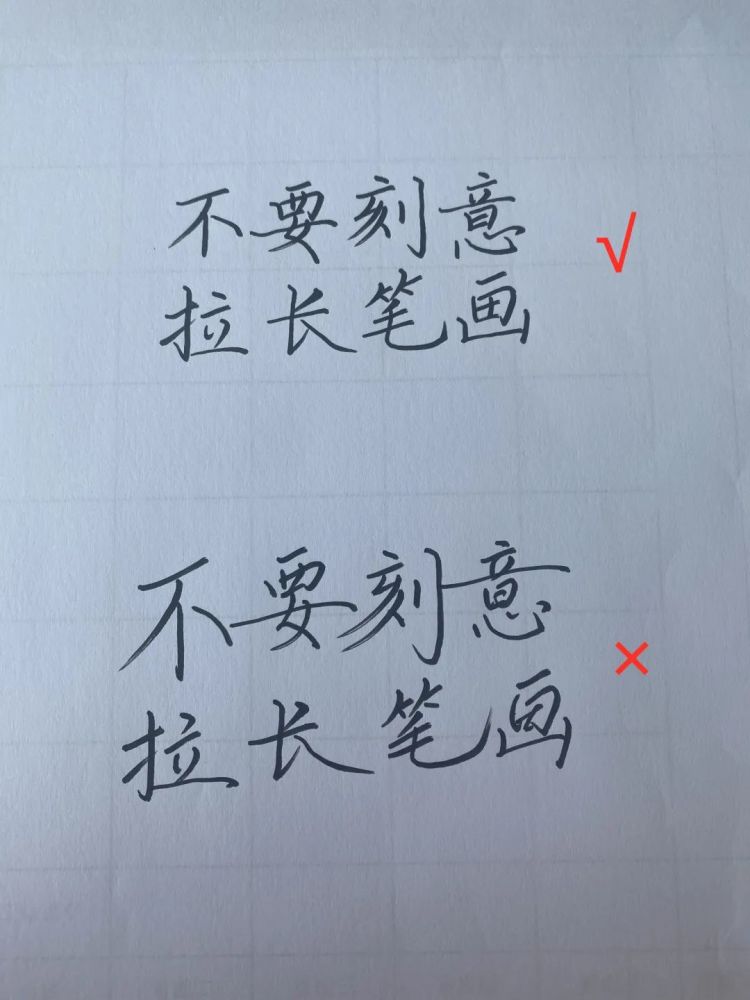 不要刻意 √
拉长笔画
不要刻意
拉长笔画 ×